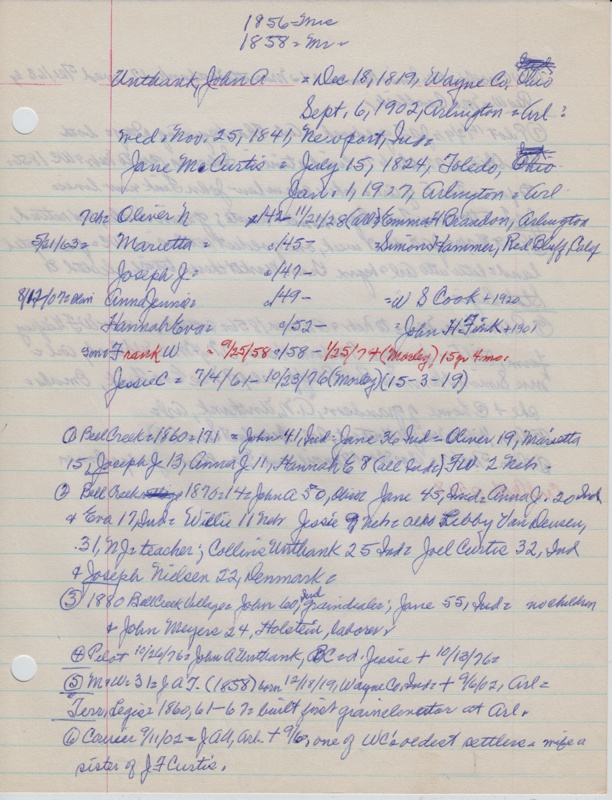 1856=Mrc
1858=Mr=
Unthank, John A = Dec 18, 1819, Wayne Co, Ohio
Sept. 6, 1902, Arlington = Arl =
wed = Nov. 25, 1841, Newport, Ind=
Jane McCurtis = July 15, 1824, Toledo, Ohio
Jan. 1, 1927, Arlington = Arl
7ch= Oliver N = o/42- 11/21/28 = Emma H Brandon, Arlington
5/21/63= Marietta = o/45- = Simon Hammer, Red Bluff Calif
Joseph J= o/47-
8/12/07= Anna Jenna= o/49- =W S Cook +1920
Hannah Eva= o/52- =John H. Fink +1907
Frank W = 9/25/58 = o/58 - 1/25/74 (Morley) 15 yr 4 mo.
Jessie C = 7/4/61 - 10/23/76 (Morley) (15-3-19)
① Bell Creek = 1860 = 171 = John 41, Ind = Jane 36 Ind = Oliver 19, Marietta
15, Joseph J 13, Anna J 11, Hannah E 8 (all Ind) FW 2 Nebr.
② Bell Creek 1870=14= John A 50, Ohio Jane 45, Ind = Anna J. 20 Ind
+ Eva 17, Ind = Willie 11 Nebr Jessie 9 Neb = also Libby Van Deusen,
31, NJ = teacher; Collins Unthank 25 Ind = Joel Curtis 32, Ind
+ Joseph Nielsen 22, Denmark=
③ 1880 Bell Creek Village = John 60, Ind graindealer; Jane 55, Ind = no children
+ John Meyers 24, Holstein, laborer
④ Pilot 10/26/76 = John A Unthank, BC = d. Jessie + 10/13/76=
⑤ M=W=31= J A T. (1858) born 12/18/19, Wayne Co, Ind = + 9/6/02, Arl=
Terr. Legis = 1860, 61-67 = built first grain elevator at Arl.
⑥ Courier 9/11/02 = J A U, Arl. + 9/6, one of WC's oldest settlers = wife a
sister of J F Curtis.